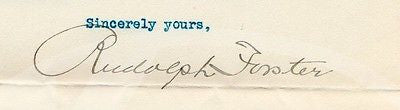 Sincerely yours,
Rudolph Forster